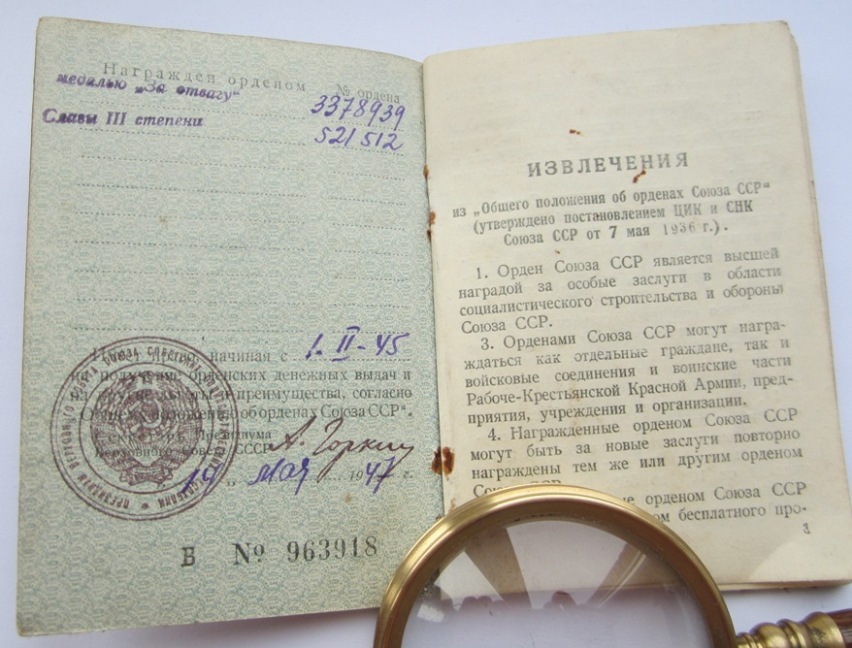 Награжден орденом № ордена
медалью „За отвагу“ 3378939
Славы III степени 521512
Имеет право, начиная с 1.II-45
на получение орденских денежных выдач и
на другие льготы и преимущества, согласно
„Общему положению об орденах Союза ССР“.
Секретарь Президиума
Верховного Совета СССР А. Горкин
19 „ мая 1947 г.
Б № 963918
ИЗВЛЕЧЕНИЯ
из „Общего положения об орденах Союза ССР“
(утверждено постановлением ЦИК и СНК
Союза ССР от 7 мая 1936 г.).
1. Орден Союза ССР является высшей
наградой за особые заслуги в области
социалистического строительства и обороны
Союза ССР.
3. Орденами Союза ССР могут награ-
ждаться как отдельные граждане, так и
войсковые соединения и воинские части
Рабоче-Крестьянской Красной Армии, пред-
приятия, учреждения и организации.
4. Награжденные орденом Союза ССР
могут быть за новые заслуги повторно
награждены тем же или другим орденом
Союза ССР.
орденом Союза ССР
бесплатного про-
3